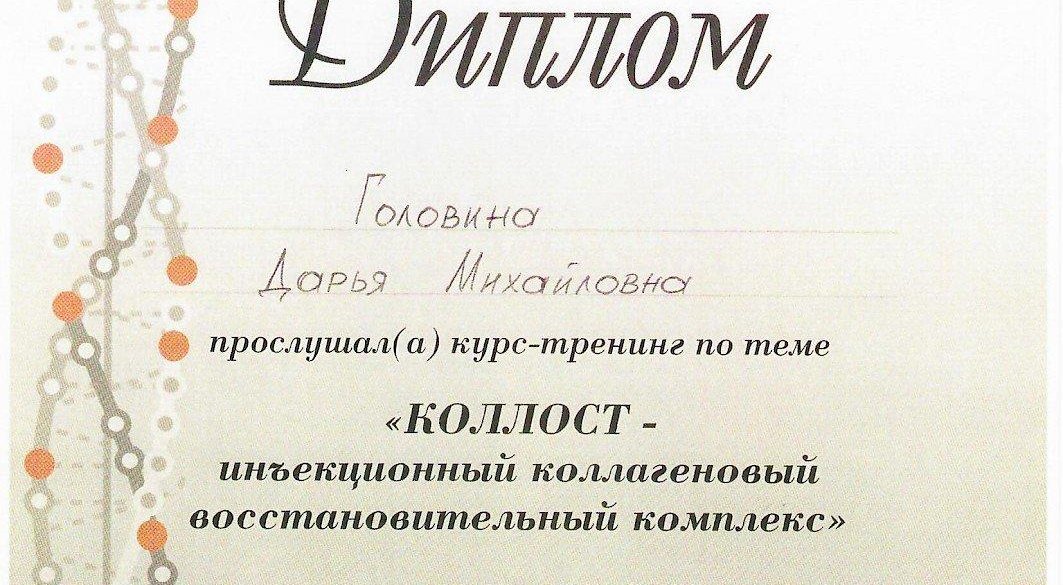 Диплом
Головина
Дарья Михайловна
прослушал(а) курс-тренинг по теме
«КОЛЛОСТ -
инъекционный коллагеновый
восстановительный комплекс»